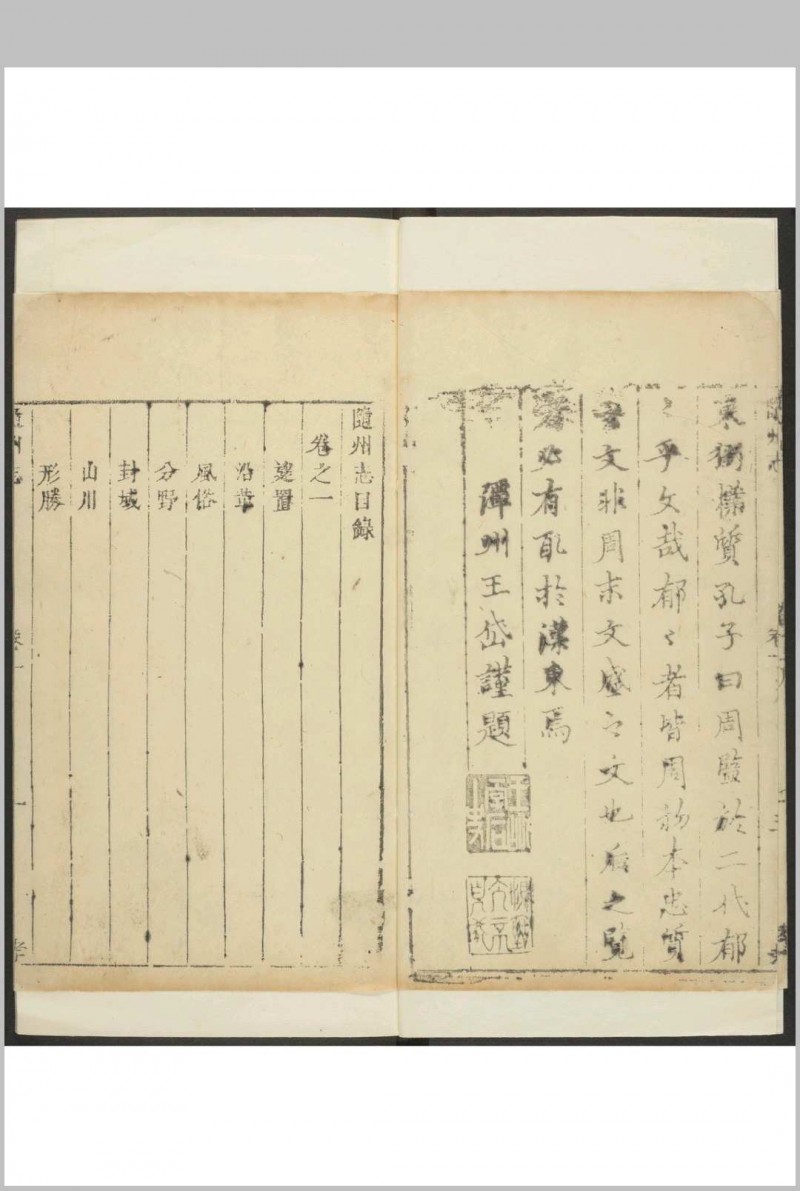 東衡橅質孔子曰周監於二代郁
〻乎文哉郁〻者皆周初本忠質
之文非周末文盛之文也后之覽
者必有取於漢東焉
潭州王岱謹題
隨州志目錄
卷之一
建置
沿革
風俗
分野
封域
山川
形勝
隨州志